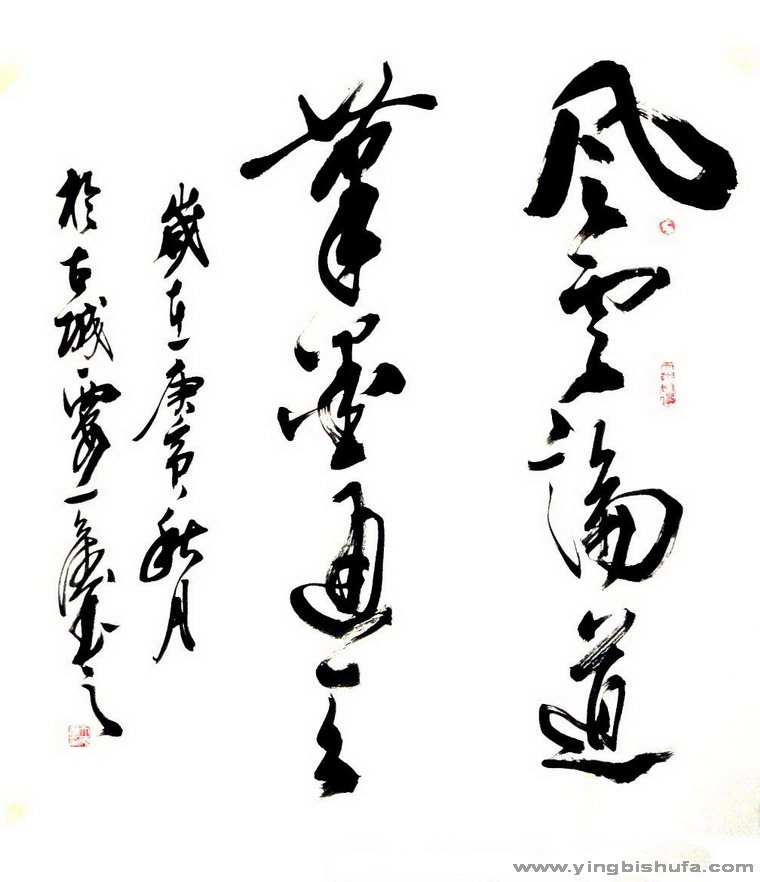 風雲論道
筆墨通玄
歲在庚寅秋月
於古城
www.yingbishufa.com